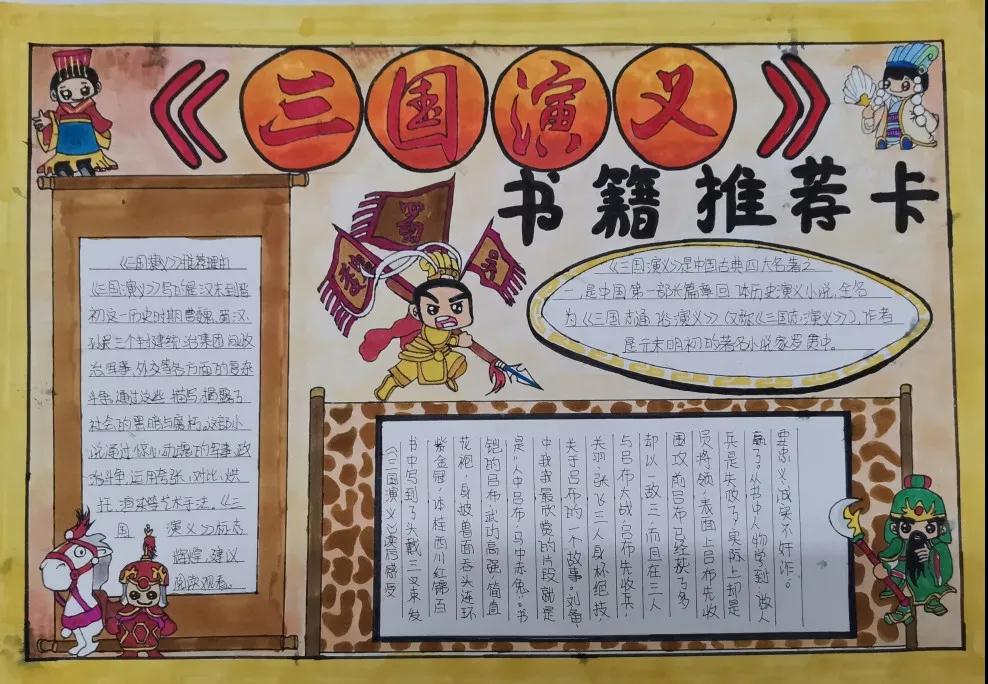 《三国演义》
书籍推荐卡
魏
蜀
吴
《三国演义》推荐理由
《三国演义》写的是汉末到晋
初这一历史时期曹魏、蜀汉、
孙吴三个封建统治集团间政
治军事、外交等各方面的复杂
斗争,通过这些描写,揭露了
社会的黑暗与腐朽,这部小
说通过惊心动魄的军事、政
治斗争,运用夸张,对比,烘
托,渲染等艺术手法。《三
国演义》标志
辉煌,建议
阅读观看。
《三国演义》是中国古典四大名著之
一,是中国第一部长篇章回体历史演义小说,全名
为《三国志通俗演义》(又称《三国志演义》),作者
是元末明初的著名小说家罗贯中。
《三国演义》读后感受
书中写到了头戴三叉束发
紫金冠,体挂西川红锦百
花袍,身披兽面吞头连环
铠的吕布,武功高强,简直
是“人中吕布,马中赤兔”。书
中我我最欣赏的片段就是
关于吕布的一个故事。刘备、
关羽、张飞三人身怀绝技,
与吕布大战,吕布先收兵,
却以一敌三,而且在三人
围攻,而吕布马经获了多
员将领,表面上吕布先收
兵是失败了,实际上却是
赢了。从书中人物学到:做人
要忠义,诚实不奸诈。